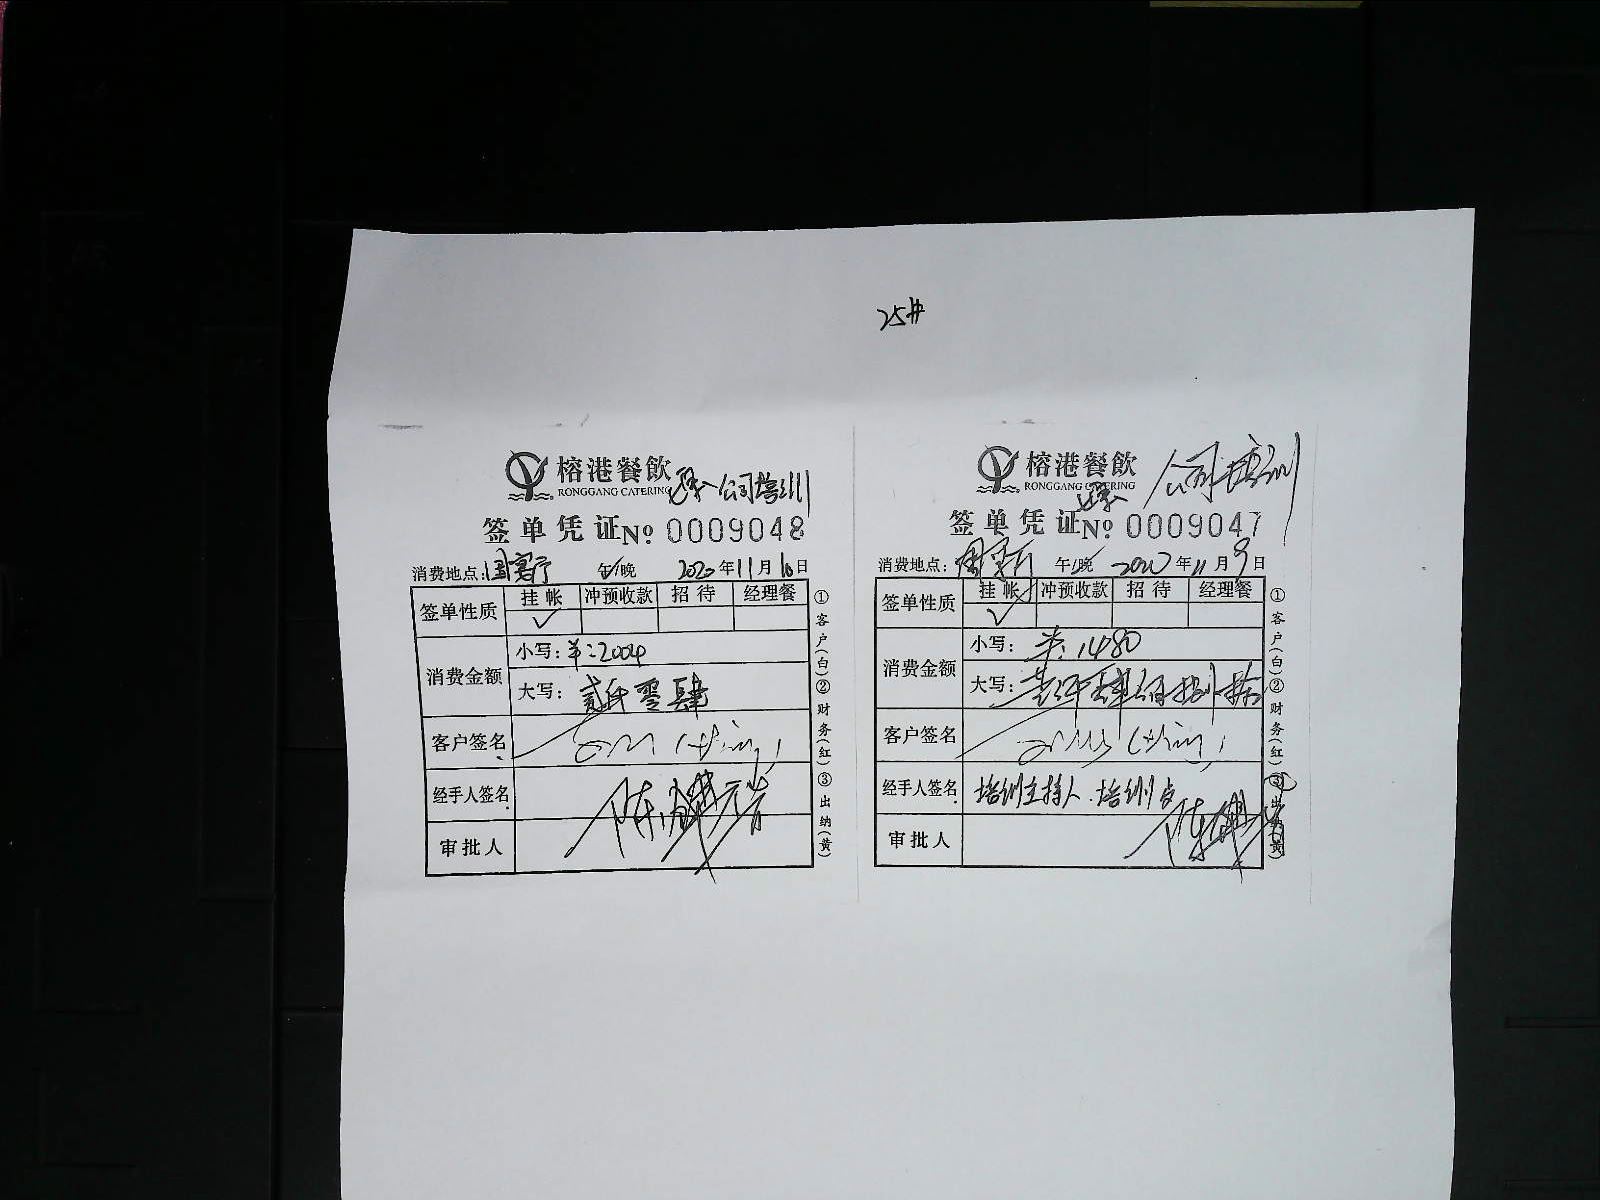 25#
榕港餐飲
RONGGANG CATERING
公司培训
签单凭证 No 0009048
消费地点: 午/晚 2020年11月10日
签单性质 挂帐 冲预收款 招待 经理餐
✓
消费金额 小写: ¥:2004
大写: 贰仟零肆
客户签名
经手人签名
审批人
①客户(白)②财务(红)③出纳(黄)
榕港餐飲
RONGGANG CATERING
公司培训
签单凭证 No 0009047
消费地点: 午/晚 2020年11月9日
签单性质 挂帐 冲预收款 招待 经理餐
✓
消费金额 小写: ¥:1480
大写:
客户签名
经手人签名 培训主持人.培训
审批人
①客户(白)②财务(红)③出纳(黄)